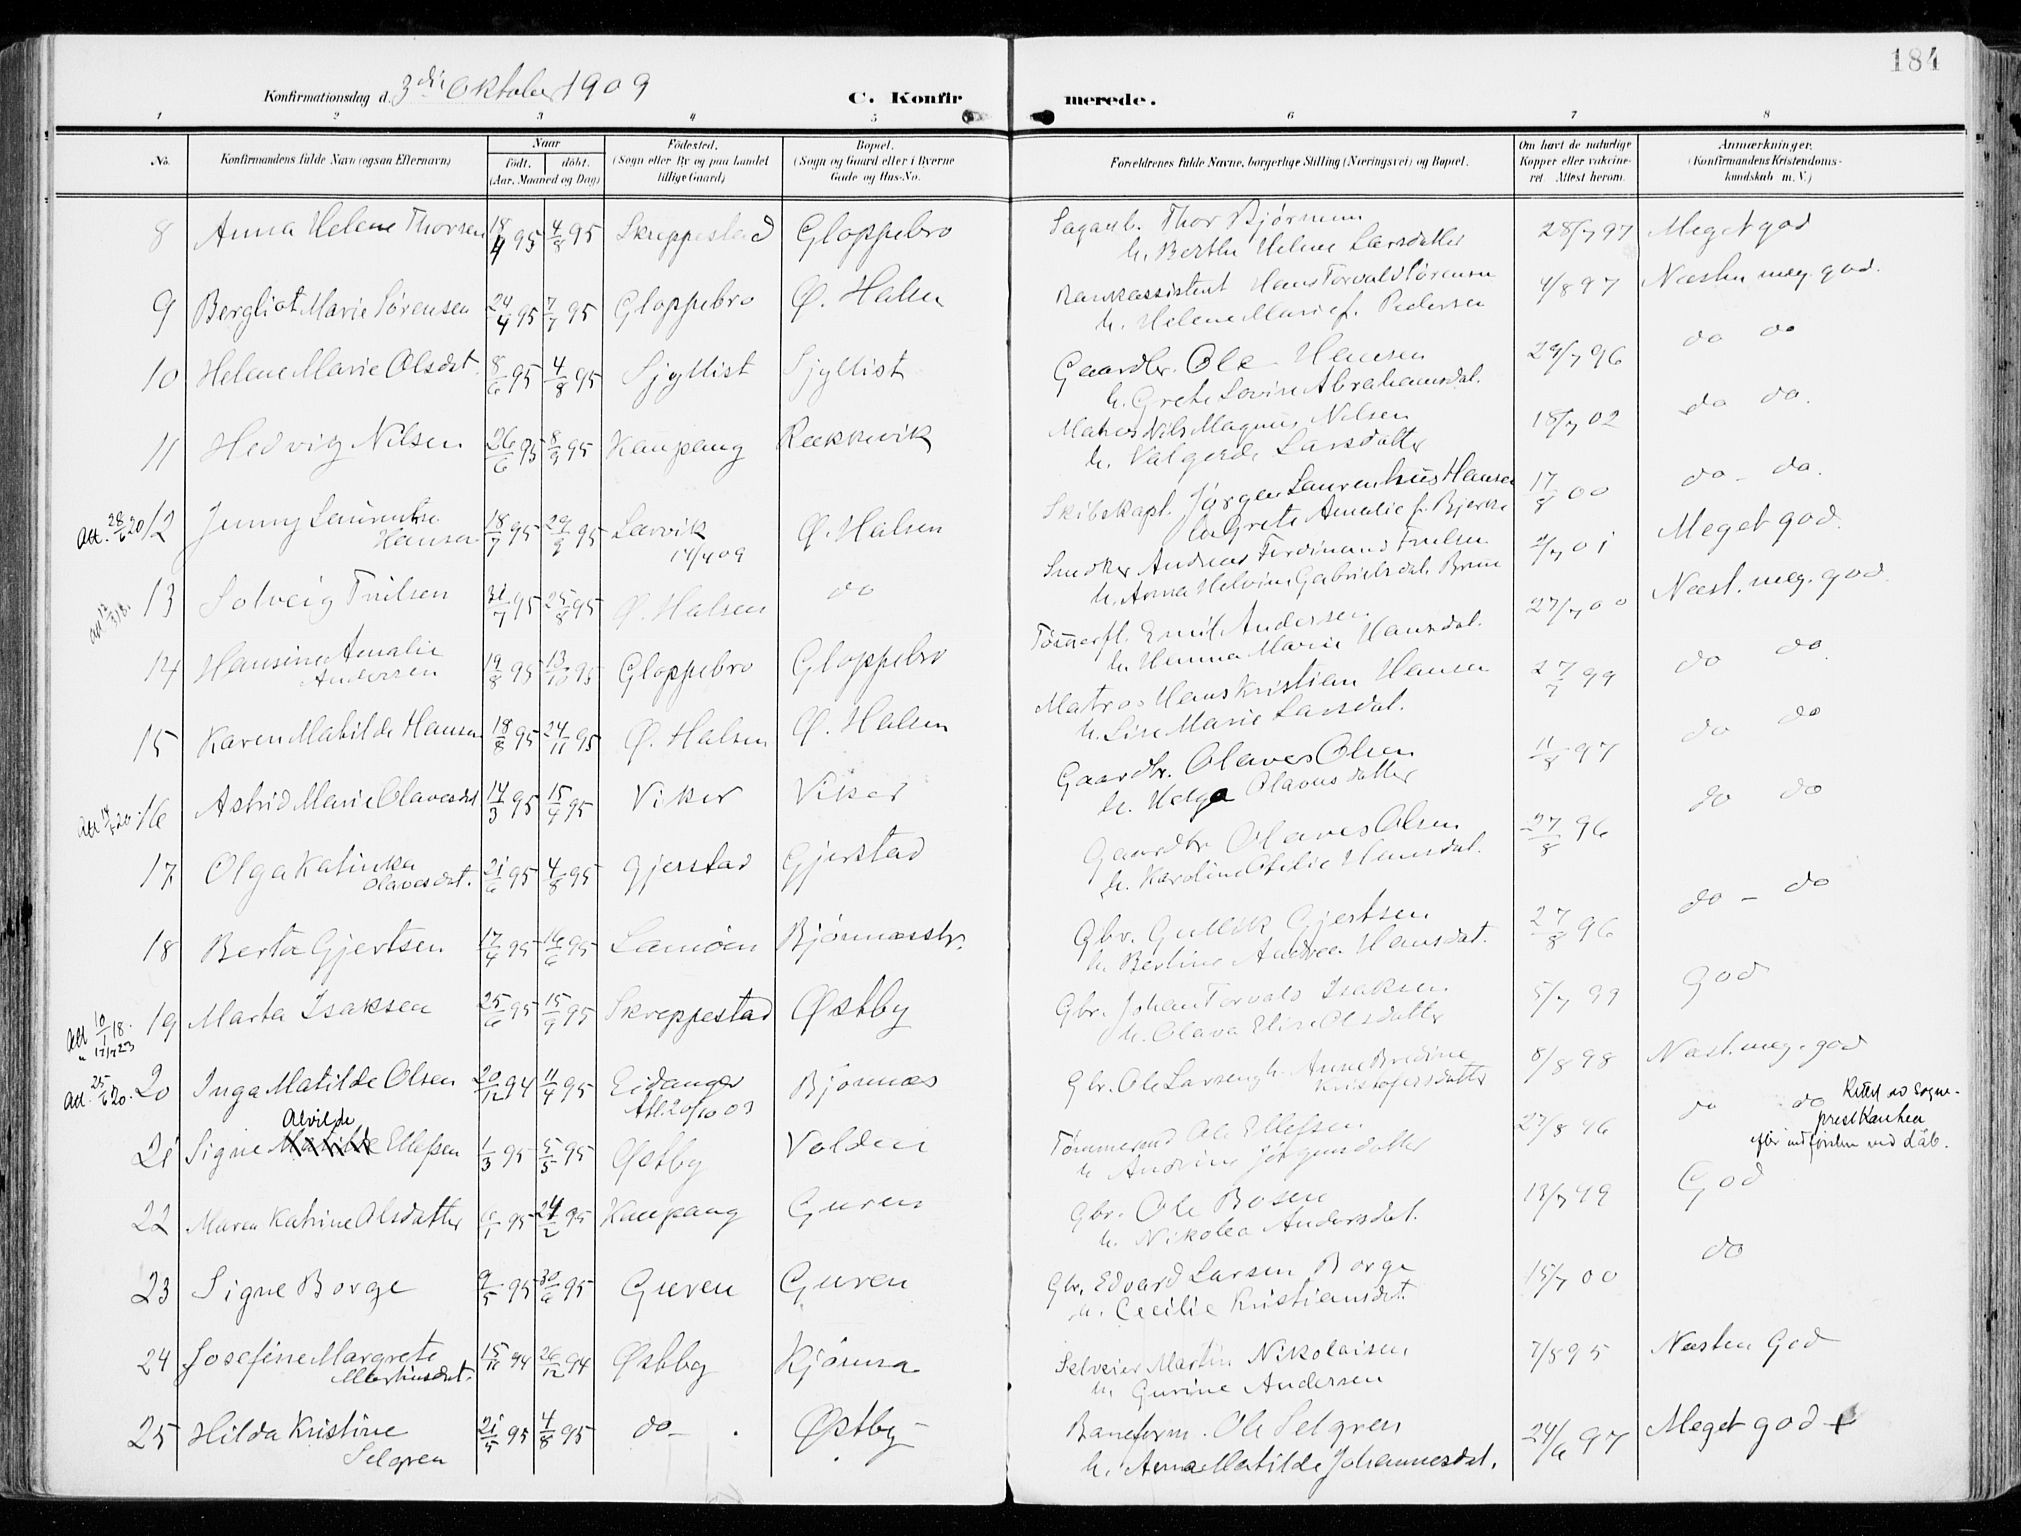 184
Konfirmationsdag d. 3die Oktober 1909
C. Konfirmerede.
1 2 3 4 5 6 7 8
No. Konfirmandens fulde Navn (ogsaa Efternavn) Naar født. døbt. (Aar, Maaned og Dag) Fødested. (Sogn eller By og paa Landet tillige Gaard) Bopæl. (Sogn og Gaard eller i Byerne Gade og Hus-No. Forældrenes fulde Navne, borgerlige Stilling (Næringsvei) og Bopæl. Om havt de naturlige Kopper eller vakcineret. Attest herom. Anmærkninger. (Konfirmandens Kristendomskundskab m. V.)
8 Anna Helene Thorsen 18/4 95 4/8 95 Skreppestad Gloppebro Sagarb. Thor Bjørnsen 28/7 97 Meget god
h. Berthe Helene Larsdatter
9 Bergliot Marie Sørensen 24/4 95 7/7 95 Gloppebro Ø. Halsen Bankassistent Hans Torvald Sørensen 4/8 97 Næsten meg. god.
h. Helene Marie f. Pedersen
10 Helene Marie Olsdat. 8/6 95 4/8 95 Sjyllist Sjyllist Gaardbr. Ole Hansen 29/7 96 do do
h. Grete Lovise Abrahamsdat.
11 Hedvig Nilsen 26/6 95 8/9 95 Kaupang Rækkevik Matros Nils Magnus Nilsen 18/7 02 do do.
h. Valgerde Larsdatter
Att. 28/6 20 12 Jenny Laurentse 18/7 95 29/9 95 Larvik Ø. Halsen Skibskapt. Jørgen Laurentius Hansen 17/8 00 do - do.
Hansen 14/4 09 h. Grete Amalie f. Bjerke
13 Solveig Truelsen 31/7 95 25/8 95 Ø. Halsen do Snedker Andreas Ferdinand Truelsen 2/7 01 Meget god.
h. Anna Helvine Gabrielsdat. Brun
14 Hansine Amalie 19/8 95 13/10 95 Gloppebro Gloppebro Tømmerfl. Emil Andersen 27/7 00 Næst. meg. god.
Andersen h. Hanna Marie Hansdat.
15 Karen Matilde Hansen 18/8 95 24/11 95 Ø. Halsen Ø. Halsen Matros Hans Kristian Hansen 27/7 99 do do
h. Lise Marie Larsdat.
16 Astrid Marie Olavesdat 14/3 95 15/4 95 Viker Viker Gaardbr. Olaves Olsen 11/8 97 do do
h. Helga Olavusdatter
17 Olga Katinka 21/6 95 4/8 95 Gjerstad Gjerstad Gaardbr Olaves Olsen 27/8 96 do do
Olavesdat. h. Karoline Otilie Hansdat.
18 Berta Gjertsen 17/4 95 16/6 95 Lamøen Bjønnesstr. Gbr. Gullik Gjertsen 27/8 96 do - do
h. Bertine Andrea Hansdat.
Att 10/1 18. 19 Marta Isaksen 25/6 95 15/9 95 Skreppestad Østby Gbr. Johan Torvald Isaksen 5/7 99 God
" 17/7 23 h. Olava Elise Olsdatter
Att. 25/6 20. 20 Inga Matilde Olsen 20/12 94 11/4 95 Eidanger Bjønnes Gbr. Ole Larsen og h. Anne Bredine 8/8 98 Næst. meg. god
Att 20/10 03 Kristofersdatter
Alvilde
21 Signe Matilde Ellefsen 1/3 95 5/5 95 Østby Volden Tømmermd Ole Ellefsen 27/8 96 do do Rettet av sogne-
h Andrine Jørgensdatter prest
22 Maren Katrine Olsdatter 6/1 95 24/2 95 Kaupang Guren Gbr. Ole Bosen 13/7 99 God
h. Nikolea Andersdat.
23 Signe Borge 9/5 95 30/6 95 Guren Guren Gbr. Edvard Larsen Borge 15/7 00 do
h. Cecilie Kristiansdat.
24 Josefine Margrete 15/11 94 26/12 94 Østby Kjønna Selveier Martin Nikolaisen 7/8 95 Næsten God
h Gurine Andersen
25 Hilda Kristine 21/5 95 4/8 95 do Østby Baneform. Ole Selgren 24/6 97 Meget god
Selgren h. Anna Matilde Johannesdat.